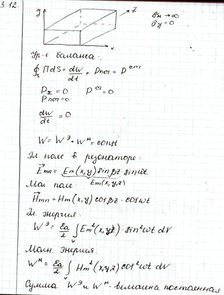 3.12
y
z
x
Ур-е баланса:
∮ПdS + dw/dt + Pпот = P ст
Pпот = 0
P ст = 0
dw/dt = 0
W = Wэ + Wм = const
Эл. поле в резонаторе:
Em(x,y) sinβz sinωt
Маг. поле
Hm(x,y) cosβz · cosωt
Эл. энергия
Wэ = εa/2 ∫ Em²(x,y,z) sin²ωt dV
Магн. энергия
Wм = ∫ Hm²(x,y,z) cos²ωt dV
Сумма Wэ и Wм - величина постоянная